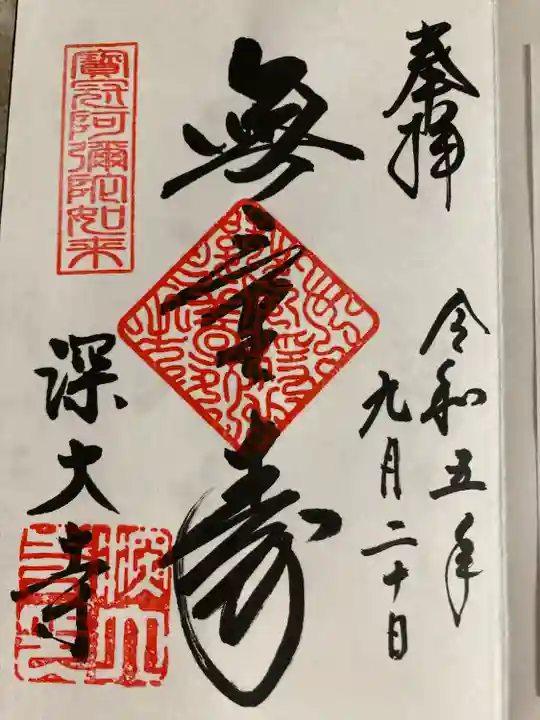 奉拝
令和五年
九月二十日
無量寿
寳冠阿彌陀如来
深大寺